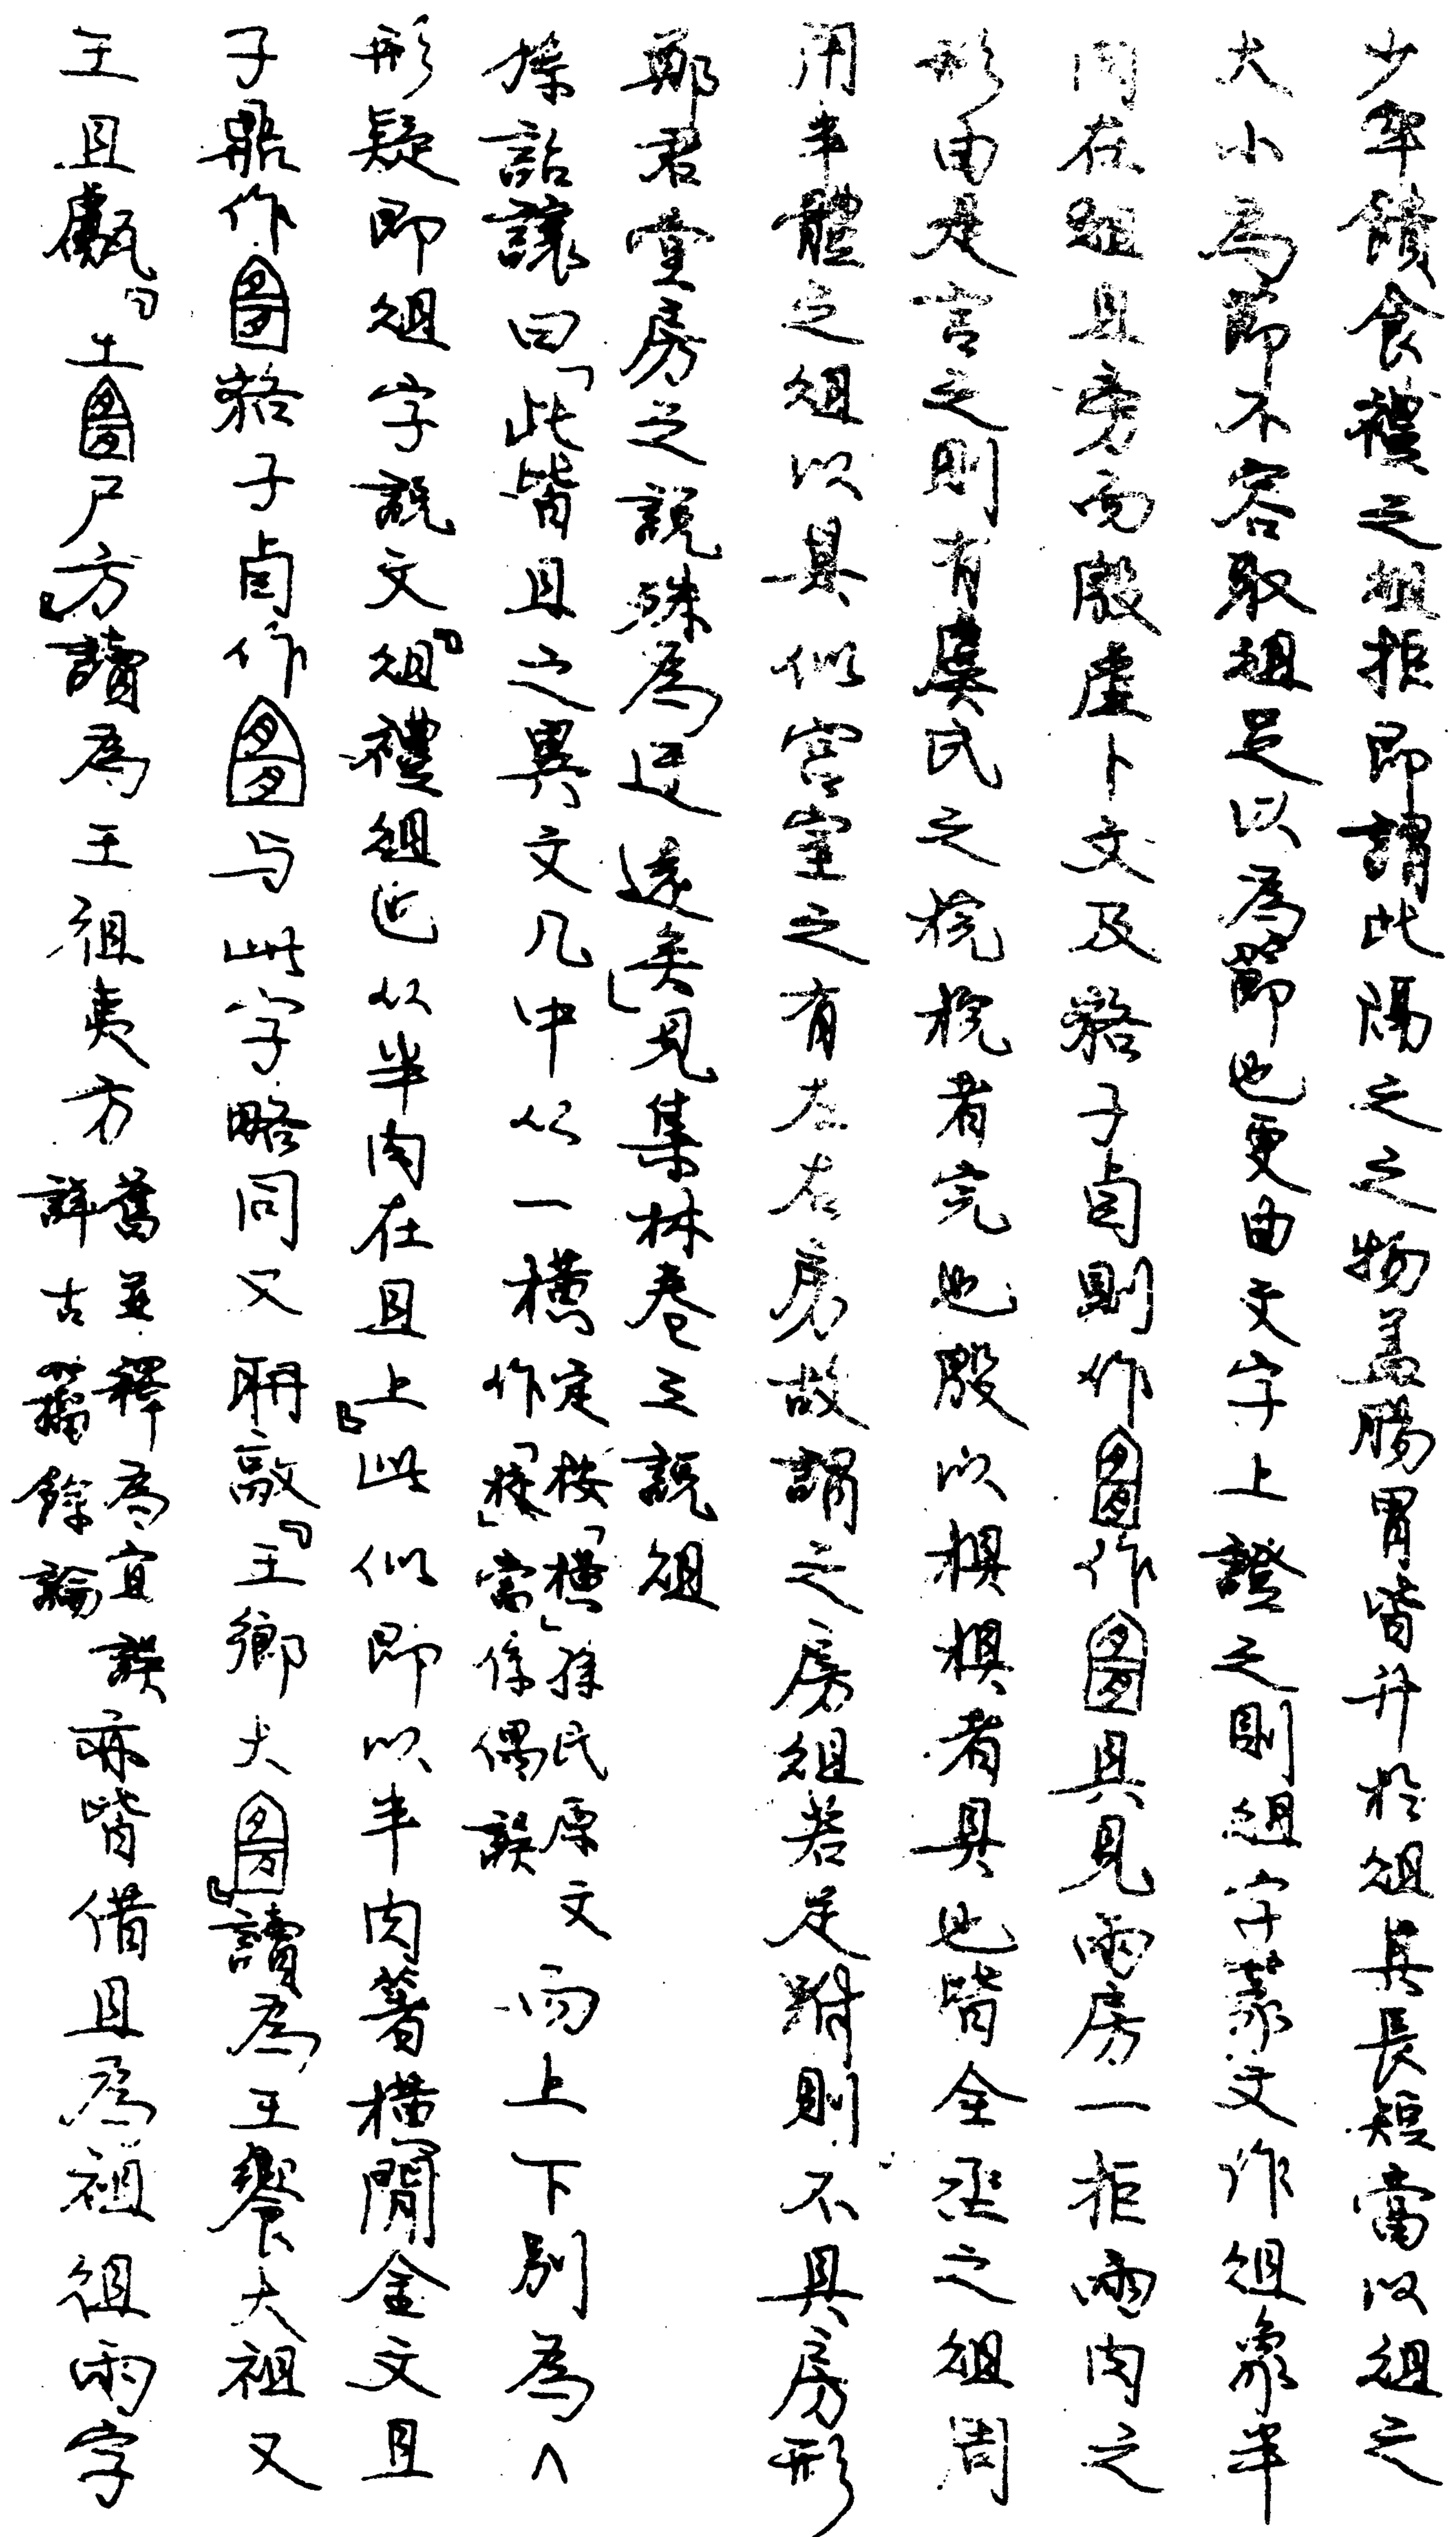 少牢饋食禮之俎拒即謂此隔之之物盖腸胃皆升於俎其長短當以俎之
大小為節不容取俎足以為節也更由文字上證之則俎字篆文作俎象半
肉在俎且旁而殷虛卜文及貉子卣則作作具見兩房一拒兩肉之
形由是言之則有虞氏之梡梡者完也殷以椇椇者具也皆全烝之俎周
用半體之俎以其似宮室之有左右房故謂之房俎若足跗則不具房形
鄭君堂房之說殊為迂遠矣」見集林卷三說俎
孫詒讓曰「此皆且之異文几中从一橫定按「橫」孫氏原文作「㨾」當係偶誤而上下別為∧
形疑即俎字說文『俎禮俎也从半肉在且上』此似即以半肉著橫閒金文且
子鼎作貉子卣作与此字略同又聃敦『王鄉大』讀為王饗大祖又
王且甗『王尸方』讀為王徂夷方舊並釋為宜誤詳古籀餘論亦皆借且為祖徂兩字